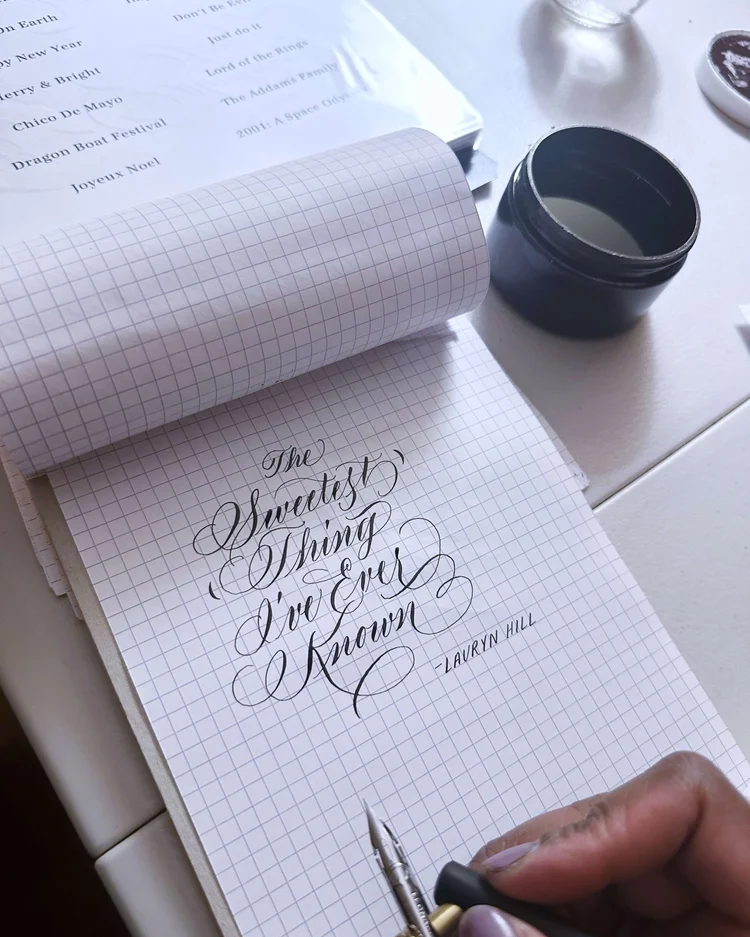 On Earth
py New Year
Merry & Bright
Chico De Mayo
Dragon Boat Festival
Joyeux Noel
Don't Be Evi
Just do it
Lord of the Rings
The Addams Family
2001: A Space Odys
The
Sweetest
Thing
I've Ever
Known
-LAURYN HILL